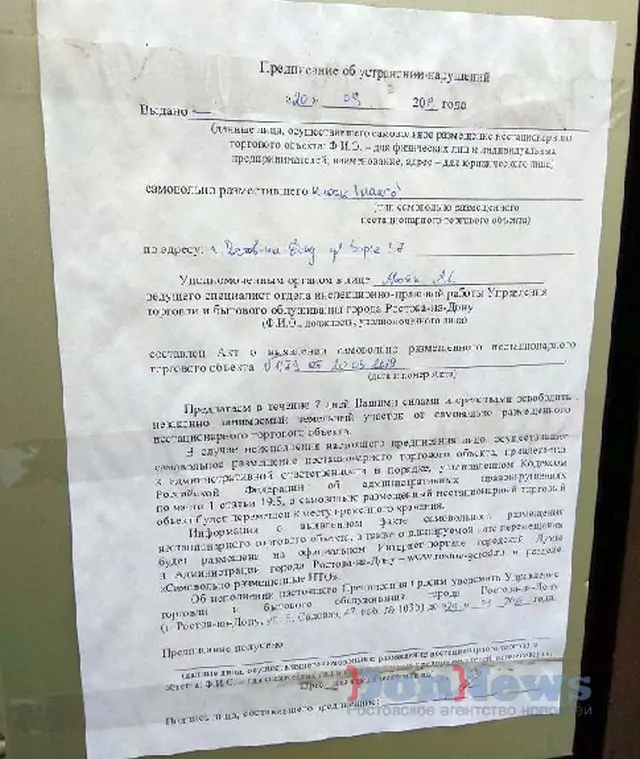 Предписание об устранении нарушений
«20» 09 2019 года
Выдано
(данные лица, осуществившего самовольное размещение нестационарного
торгового объекта: Ф.И.О. – для физических лиц и индивидуальных
предпринимателей; наименование, адрес – для юридического лица)
самовольно разместившего киоск
(тип самовольно размещенного
нестационарного торгового объекта)
по адресу: г. Ростов-на-Дону
Уполномоченным органом в лице
ведущего специалист отдела инспекционно-правовой работы Управления
торговли и бытового обслуживания города Ростова-на-Дону
(Ф.И.О., должность, уполномоченного лица)
составлен Акт о выявлении самовольно размещенного нестационарного
торгового объекта от 20.09.2019
(дата и номер Акта)
Предлагаем в течение 7 дней Вашими силами и средствами освободить
незаконно занимаемый земельный участок от самовольно размещенного
нестационарного торгового объекта.
В случае неисполнения настоящего предписания лицо, осуществившее
самовольное размещение нестационарного торгового объекта, привлекается
к административной ответственности в порядке, установленном Кодексом
Российской Федерации об административных правонарушениях
по части 1 статьи 19.5, а самовольно размещенный нестационарный торговый
объект будет перемещен к месту временного хранения.
Информация о выявленном факте самовольного размещения
нестационарного торгового объекта, а также о планируемой дате перемещения
будет размещена на официальном Интернет-портале городской Думы
и Администрации города Ростова-на-Дону – www.rostov-gorod.ru в разделе
«Самовольно размещенные НТО».
Об исполнении настоящего Предписания просим уведомить Управление
торговли и бытового обслуживания города Ростова-на-Дону
(г. Ростов-на-Дону, ул. Б. Садовая, 47, каб. № 103б) до года.
Предписание получено
(данные лица, осуществившего самовольное размещение нестационарного торгового
объекта: Ф.И.О. – для физических лиц и индивидуальных предпринимателей; наименование,
адрес – для юридического лица)
Подпись лица, составившего предписание:
DonNews
Ростовское агентство новостей